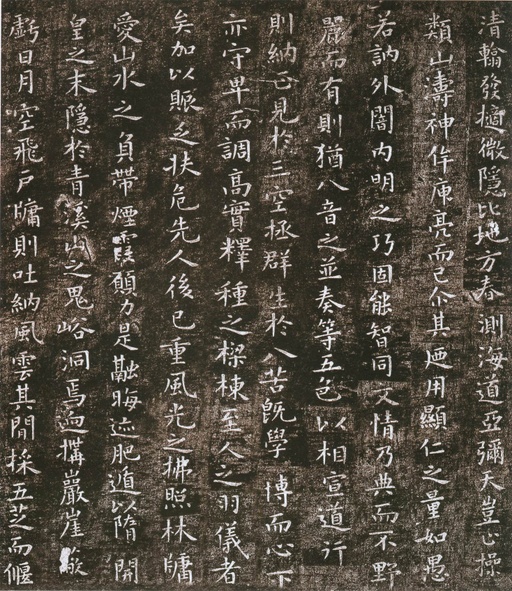 清翰發擿微隱比地方春測海道亞彌天豈止操
類山濤神侔庾亮而已尒其廼用顯仁之量如愚
若訥外闇內明之巧固能智同文情乃典而不野
麗而有則猶八音之並奏等五色以相宣道行
則納正見於三空拯群生於八苦既學博而心下
亦守卑而調高實釋種之樑棟至人之羽儀者
矣加以賑乏扶危先人後己重風光之拂照林牖
愛山水之負帶煙霞願力是融晦迹肥遁以隋開
皇之末隱於青溪山之鬼峪洞焉迥搆巖崖蔽
虧日月空飛戶牖則吐納風雲其間採五芝而偃